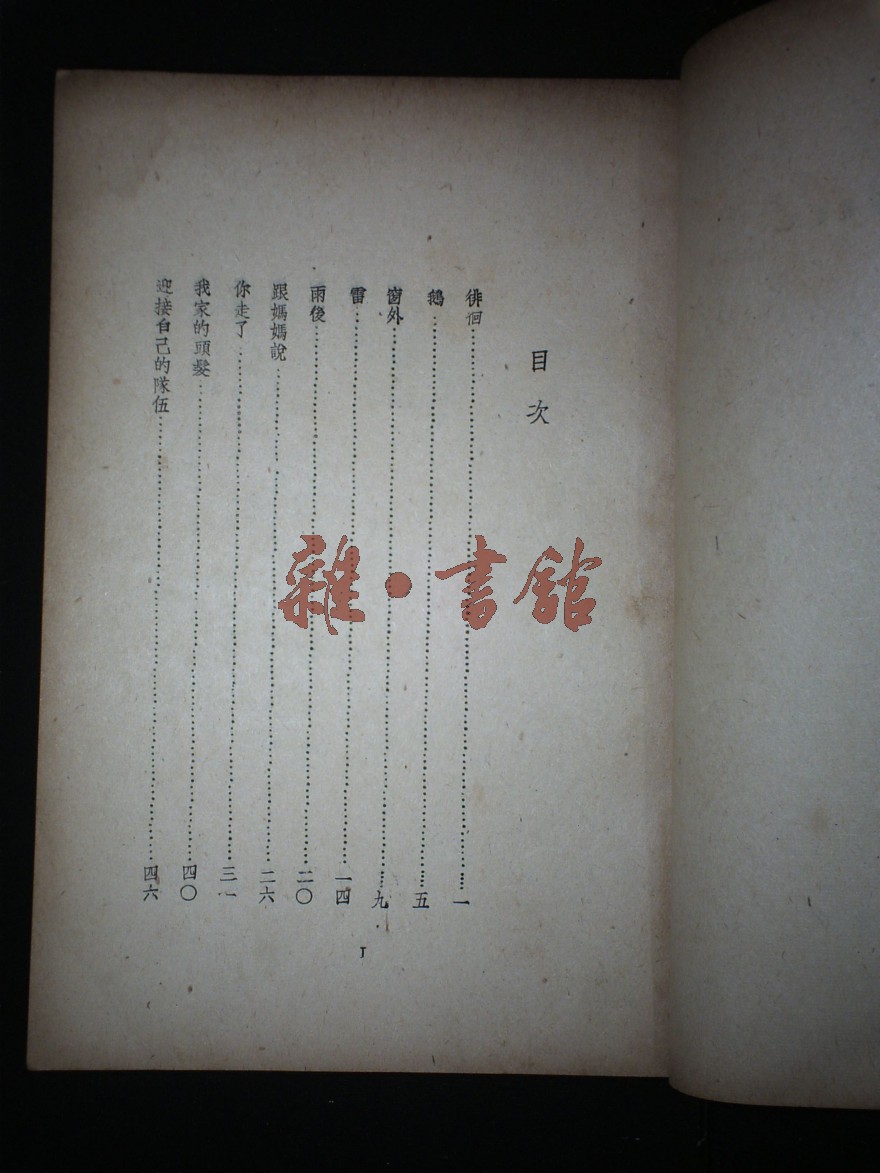 目次
徘徊……一
鵝……五
窗外……九
雷……一四
雨後……二〇
跟媽媽說……二六
你走了……三一
我家的頭髮……四〇
迎接自己的隊伍……四六
1
雜·書館